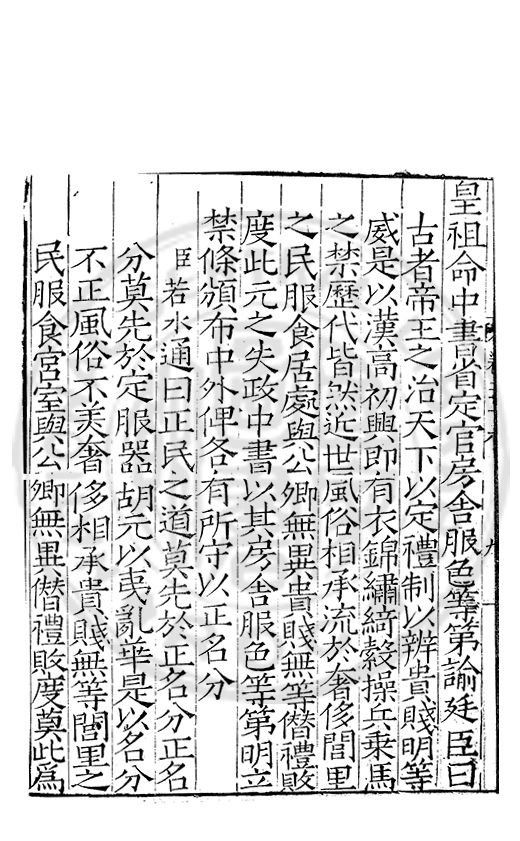 皇祖命中書省定官房舍服色等第諭廷臣曰
古者帝王之治天下以定禮制以辨貴賤明等
威是以漢高初興即有衣錦繡綺縠操兵乗馬
之禁歷代皆然近世風俗相承流於奢侈閭里
之民服食居處與公卿無異貴賤無等僣禮敗
度此元之失政中書以其房舍服色等第明立
禁條頒布中外俾各有所守以正名分
臣若水通曰正民之道莫先於正名分正名
分莫先於定服器胡元以夷亂華是以名分
不正風俗不美奢侈相承貴賤無等閭里之
民服食宮室與公卿無異僣禮敗度莫此爲